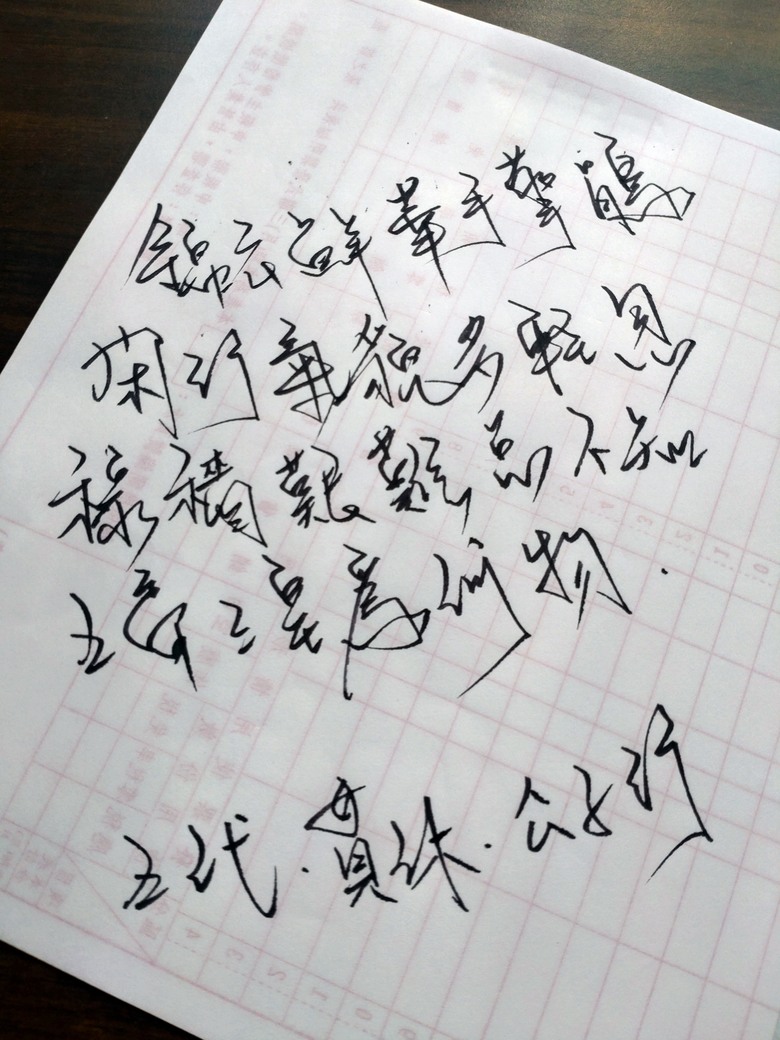 錦衣鮮華手擎鶻
閑行氣貌多輕忽
稼穡艱難总不知
五帝三皇為何物.
五代.貫休.公子行